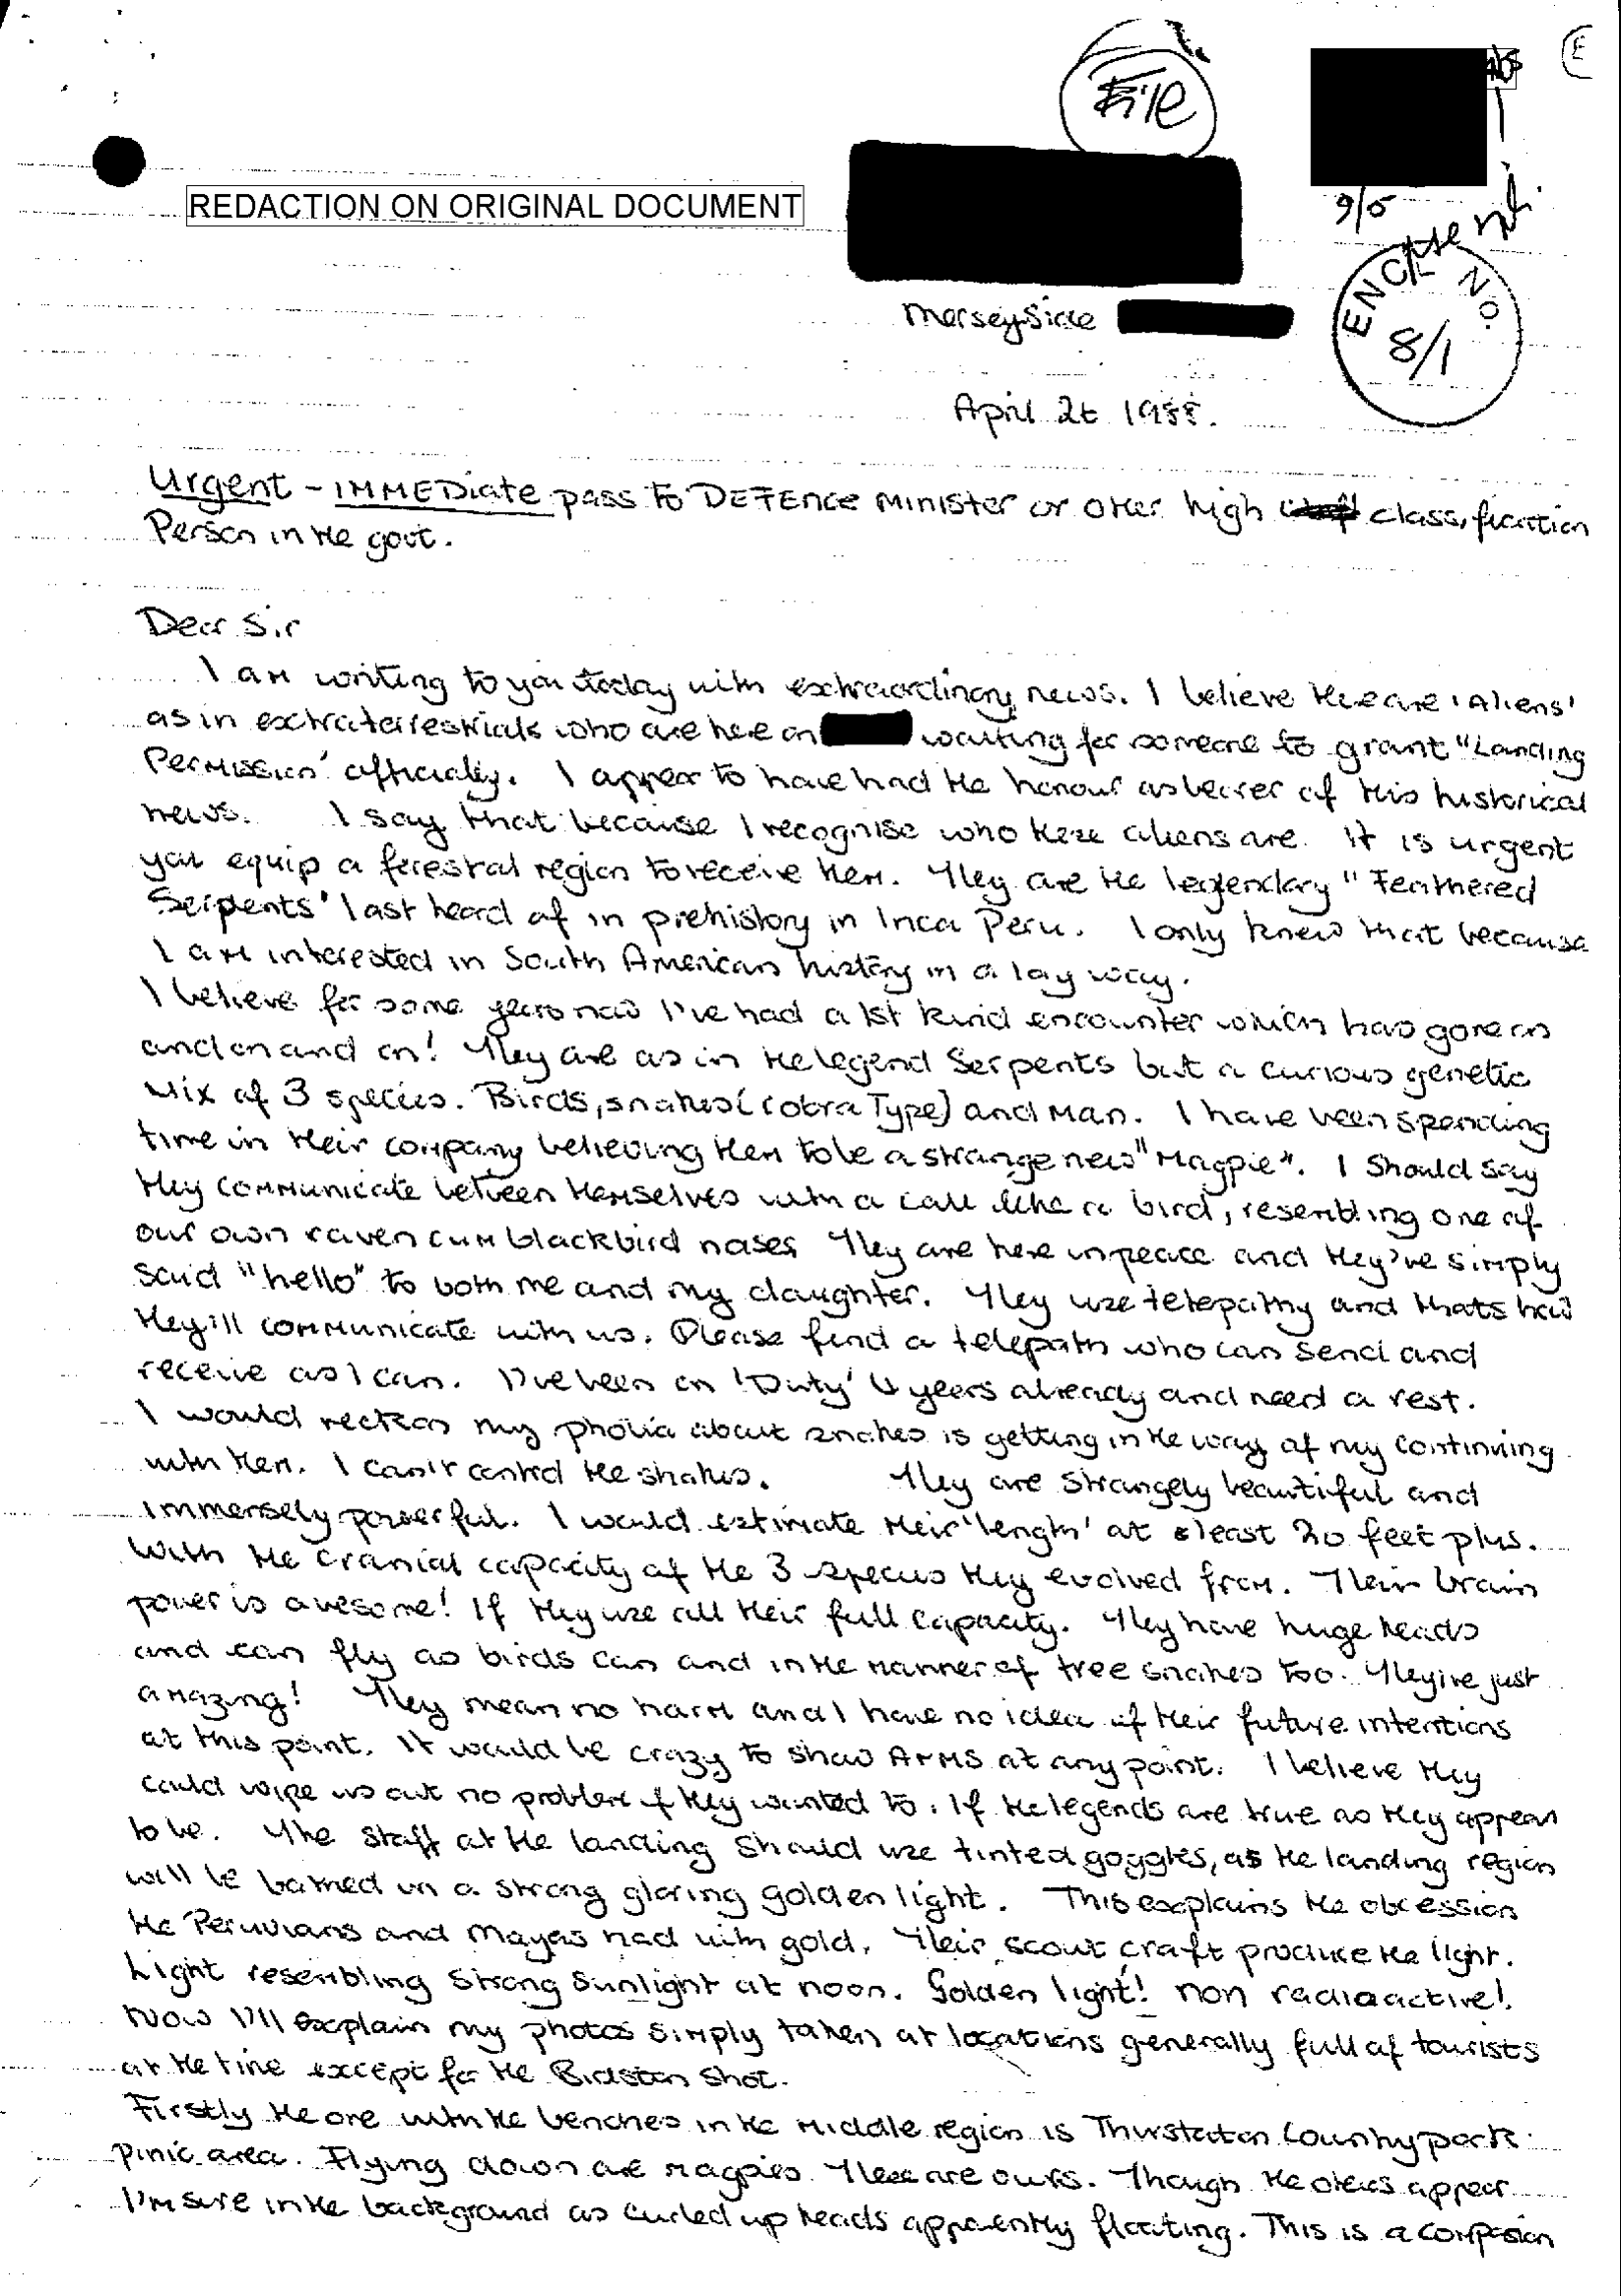 File
E
9/5
REDACTION ON ORIGINAL DOCUMENT
ENCL No.
8/1
Merseyside
April 26 1988.
Urgent - IMMEDiate pass to DEFEnce Minister or other high classification
Person in the govt.
Dear Sir
I am writing to you today with extraordinary news. I believe there are 'Aliens'
as in extraterrestrials who are here on waiting for someone to grant "Landing
Permission' officially. I appear to have had the honour as bearer of this historical
news. I say that because I recognise who these aliens are. It is urgent
you equip a forestral region to receive them. They are the legendary "Feathered
Serpents' last heard of in prehistory in Inca Peru. I only knew that because
I am interested in South American history in a lay way.
I believe for some years now I've had a 1st kind encounter which has gone on
and on and on! They are as in the legend Serpents but a curious genetic
mix of 3 species. Birds, snakes (cobra Type) and Man. I have been spending
time in their company believing them to be a strange new "Magpie". I should say
they communicate between themselves with a call like a bird, resembling one of
our own raven cum blackbird noises They are here in peace and they've simply
said "hello" to both me and my daughter. They use telepathy and thats how
they'll communicate with us. Please find a telepath who can send and
receive as I can. I've been on 'Duty' 4 years already and need a rest.
I would reckon my phobia about snakes is getting in the way of my continuing
with them. I can't control the shakes. They are strangely beautiful and
immensely powerful. I would estimate their 'length' at least 20 feet plus.
With the cranial capacity of the 3 species they evolved from. Their brain
power is awesome! If they use all their full capacity. They have huge heads
and can fly as birds can and in the manner of tree snakes too. They're just
amazing! They mean no harm and I have no idea of their future intentions
at this point. It would be crazy to show ARMS at any point. I believe they
could wipe us out no problem if they wanted to. If the legends are true as they appear
to be. The staff at the landing should use tinted goggles, as the landing region
will be bathed in a strong glaring golden light. This explains the obcession
the Peruvians and Mayas had with gold. Their scout craft produce the light.
Light resembling strong sunlight at noon. Golden light! non radioactive!
Now I'll explain my photos simply taken at locations generally full of tourists
at the time except for the Bidston shot.
Firstly the one with the benches in the middle region is Thurstaton Country park
pinic area. Flying down are magpies. These are ours. Though the others appear
I'm sure in the background as curled up heads apparently floating. This is a comparison